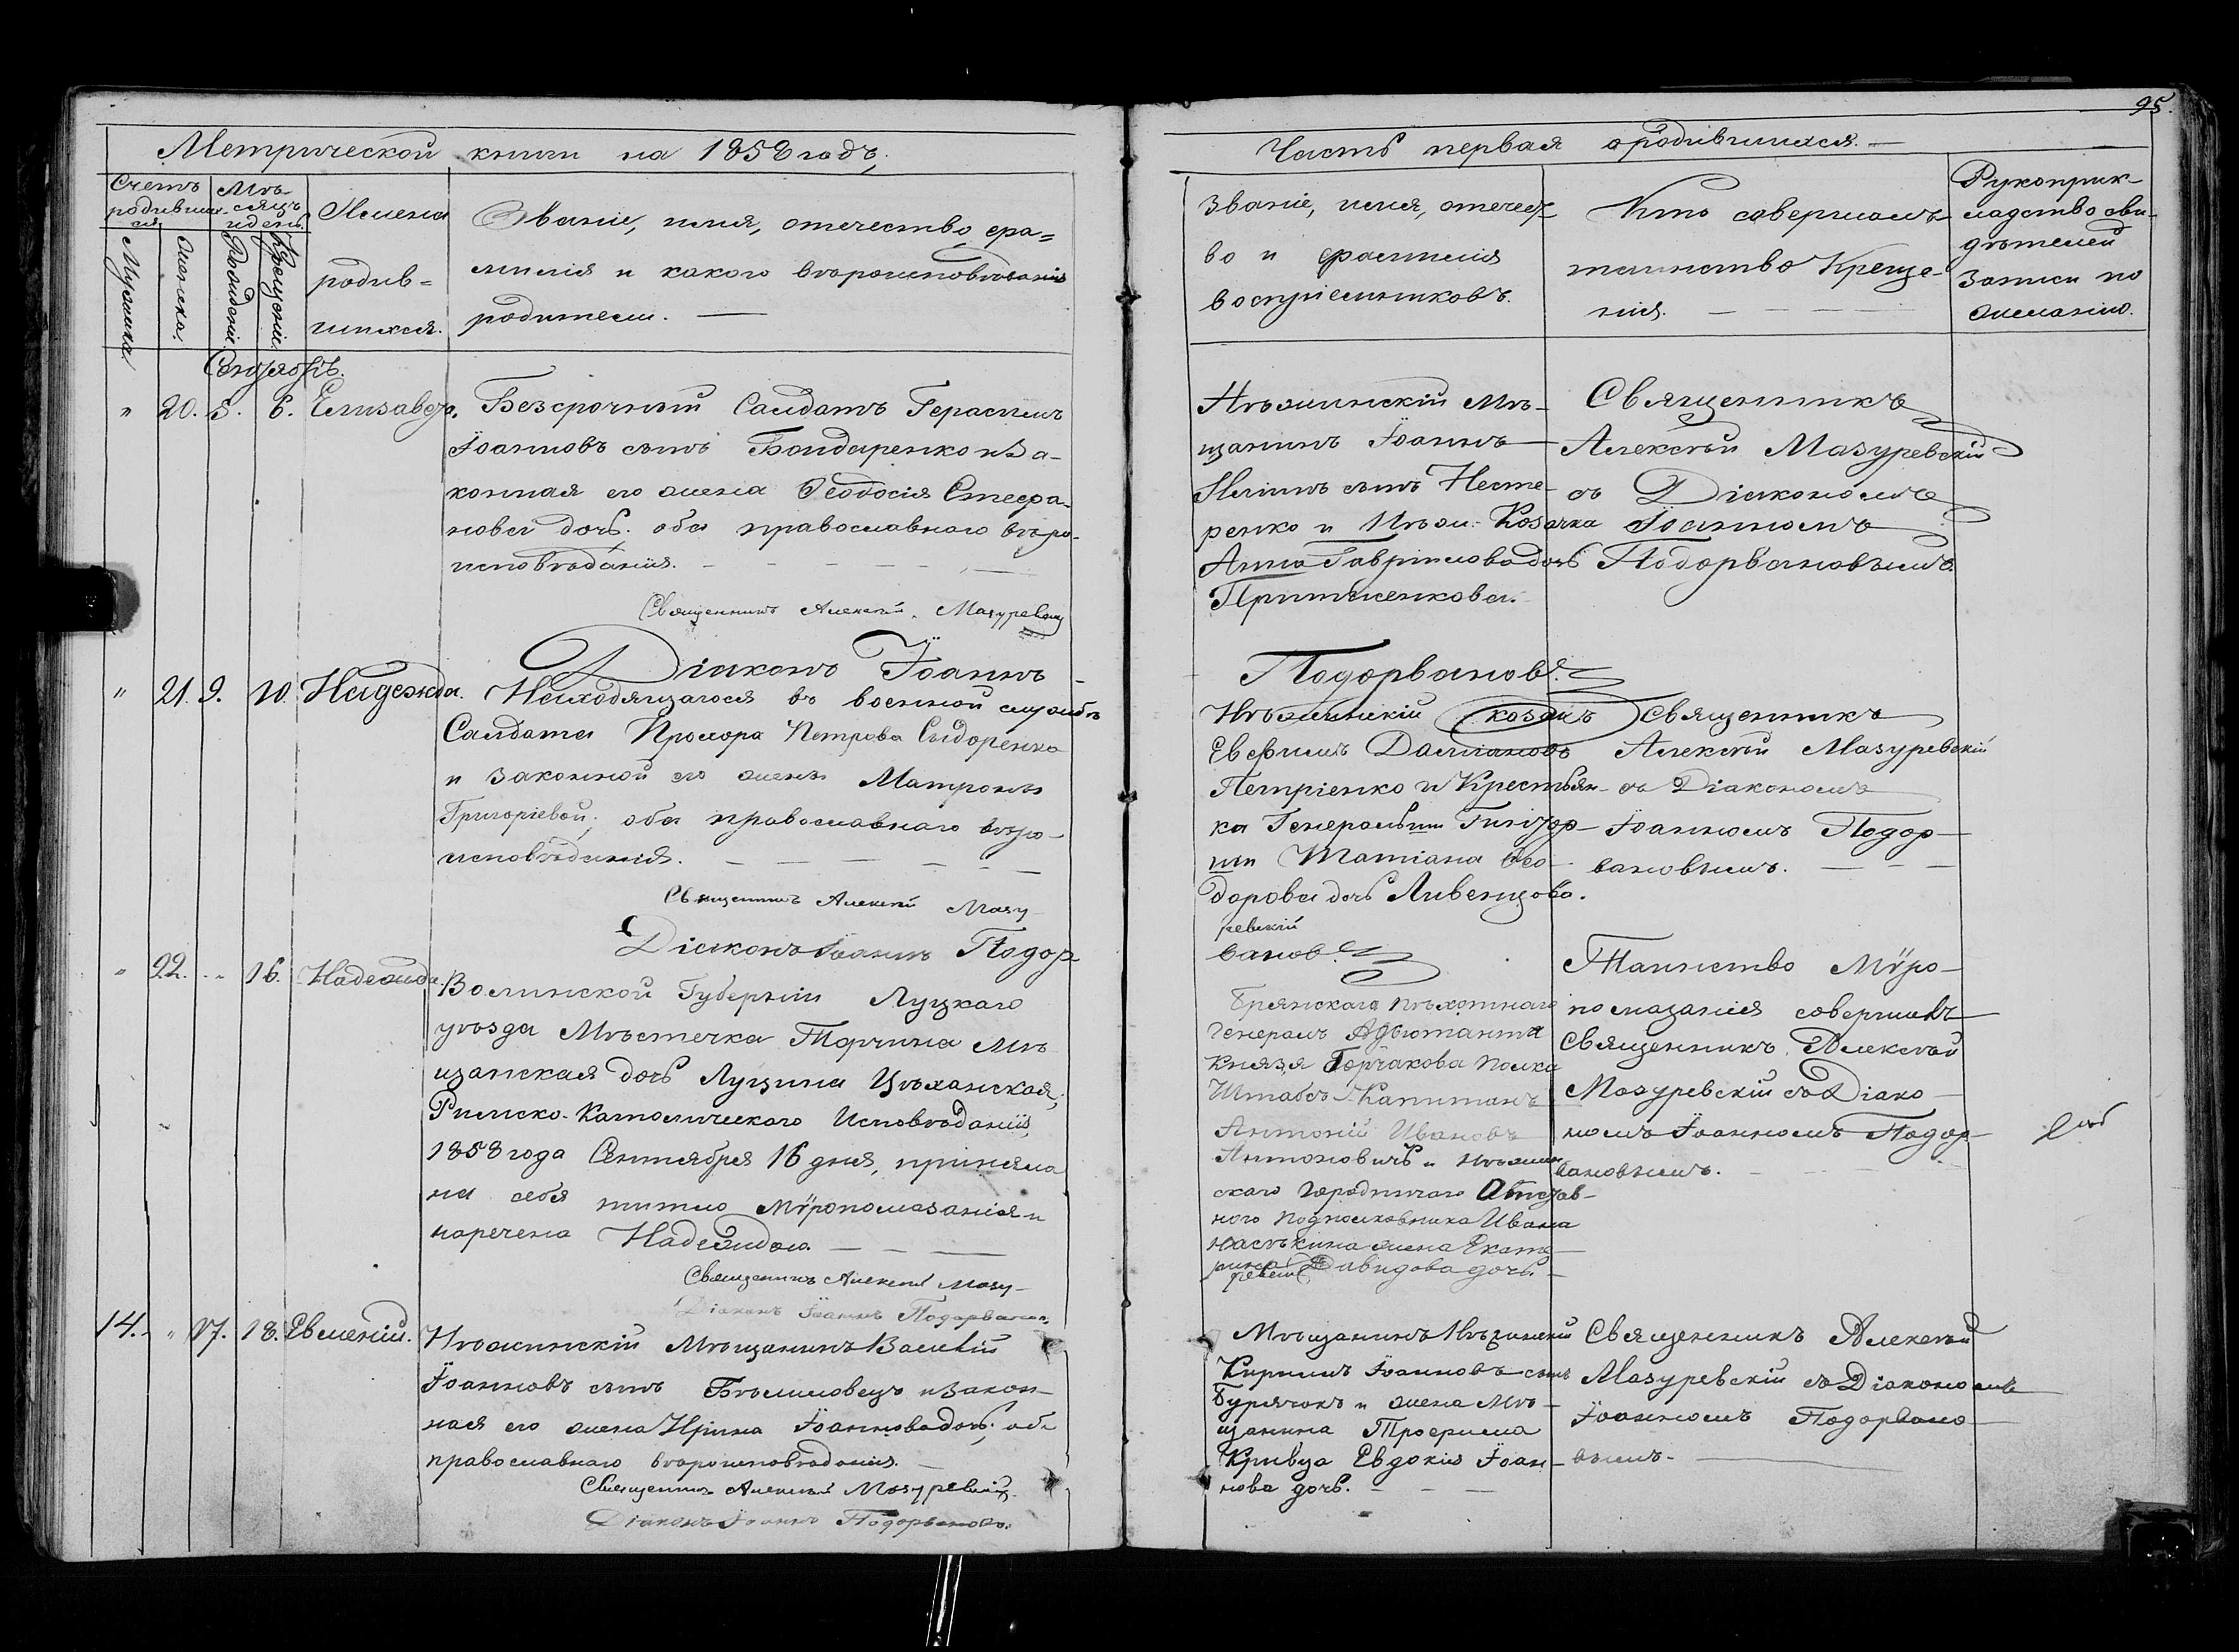 95.
Метрической книги на 1858 годъ,
Часть первая о родившихся.
Счетъ родивших-ся
Мѣ-сяцъ и день.
Мужска.
Женска.
Рожденія.
Крещенія.
Имена
родив=
шихся.
Званіе, имя, отечество, фа=
милія и какого вѣроисповѣданія
родители. —
Званіе, имя, отечест-
во и фамилія
воспріемниковъ.
Кто совершалъ
таинство Креще-
нія.
Рукоприк-
ладство сви-
дѣтелей
записи по
желанію.
Сентябрь.
" 20. 5. 6. Елизавета.
Безсрочный Салдатъ Герасимъ
Іоанновъ сынъ Бондаренко и за-
конная его жена Ѳеодосія Стефа-
нова дочь. оба православнаго вѣро-
исповѣданія.
Священникъ Алексѣй Мазуревскій
Діаконъ Іоаннъ
Нѣжинскій мѣ-
щанинъ Іоаннъ
Иліинъ сынъ Несте-
ренко и Нѣж: Козачка
Анна Гавріилова дочь
Священникъ
Алексѣй Мазуревскій
съ Діакономъ
Іоанномъ
Подорвановымъ.
Подорвановъ.
" 21. 9. 10. Надежда.
Находящагося въ военной службѣ
Салдата Прохора Петрова Сидоренка
и законной его жены Матроны
Григоріевой; оба православнаго вѣро-
исповѣданія.
Священникъ Алексѣй Мазу
Діаконъ Іоаннъ Подор
Нѣжинскій козакъ
Евфимъ Даміановъ
Петріенко и Крестьян-
ка Генеральши
Татіана Ѳео-
дорова дочь Ливенцова.
ревскій
ванов.
Священникъ
Алексѣй Мазуревскій
съ Діакономъ
Іоанномъ Подор-
вановымъ.
" 22. " 16. Надежда.
Волинской Губерніи Луцкаго
уѣзда Мѣстечка Торчина мѣ
щанская дочь Луцина Цѣханская,
Римско-Католическаго Исповѣданія,
1858 года Сентября 16 дня, приняла
на себя Мѵропомазанія и
наречена Надеждою.
Священникъ Алексѣй Мазу-
Діаконъ Іоаннъ Подорванов
Брянскаго пѣхотнаго
Генералъ Адьютанта
Князя Горчакова полка
Штабсъ-Капитанъ
Антоній Ивановъ
Антоновичъ и Нѣжин
скаго городничаго Отстав-
ного Подполковника Ивана
жена Екате
рина Давидова дочь.
ревскій
Таинство Мѵро-
помазанія совершилъ
Священникъ Алексѣй
Мазуревскій съ Діако-
номъ Іоанномъ Подор-
вановымъ.
14. " 17. 18. Евменій.
Нѣжинскій Мѣщанинъ Василій
Іоанновъ сынъ Бѣлиловецъ и закон-
ная его жена Ирина Іоаннова дочь; оба
православнаго вѣроисповѣданія.
Священникъ Алексѣй Мазуревскій
Діаконъ Іоаннъ Подорвановъ.
Мѣщанинъ Нѣжинскій
Кириллъ Іоанновъ сынъ
Бурячокъ и жена мѣ-
щанина Трофима
Кривца Евдокія Іоан-
нова дочь.
Священникъ Алексѣй
Мазуревскій съ Діакономъ
Іоанномъ Подорвано-
вымъ.